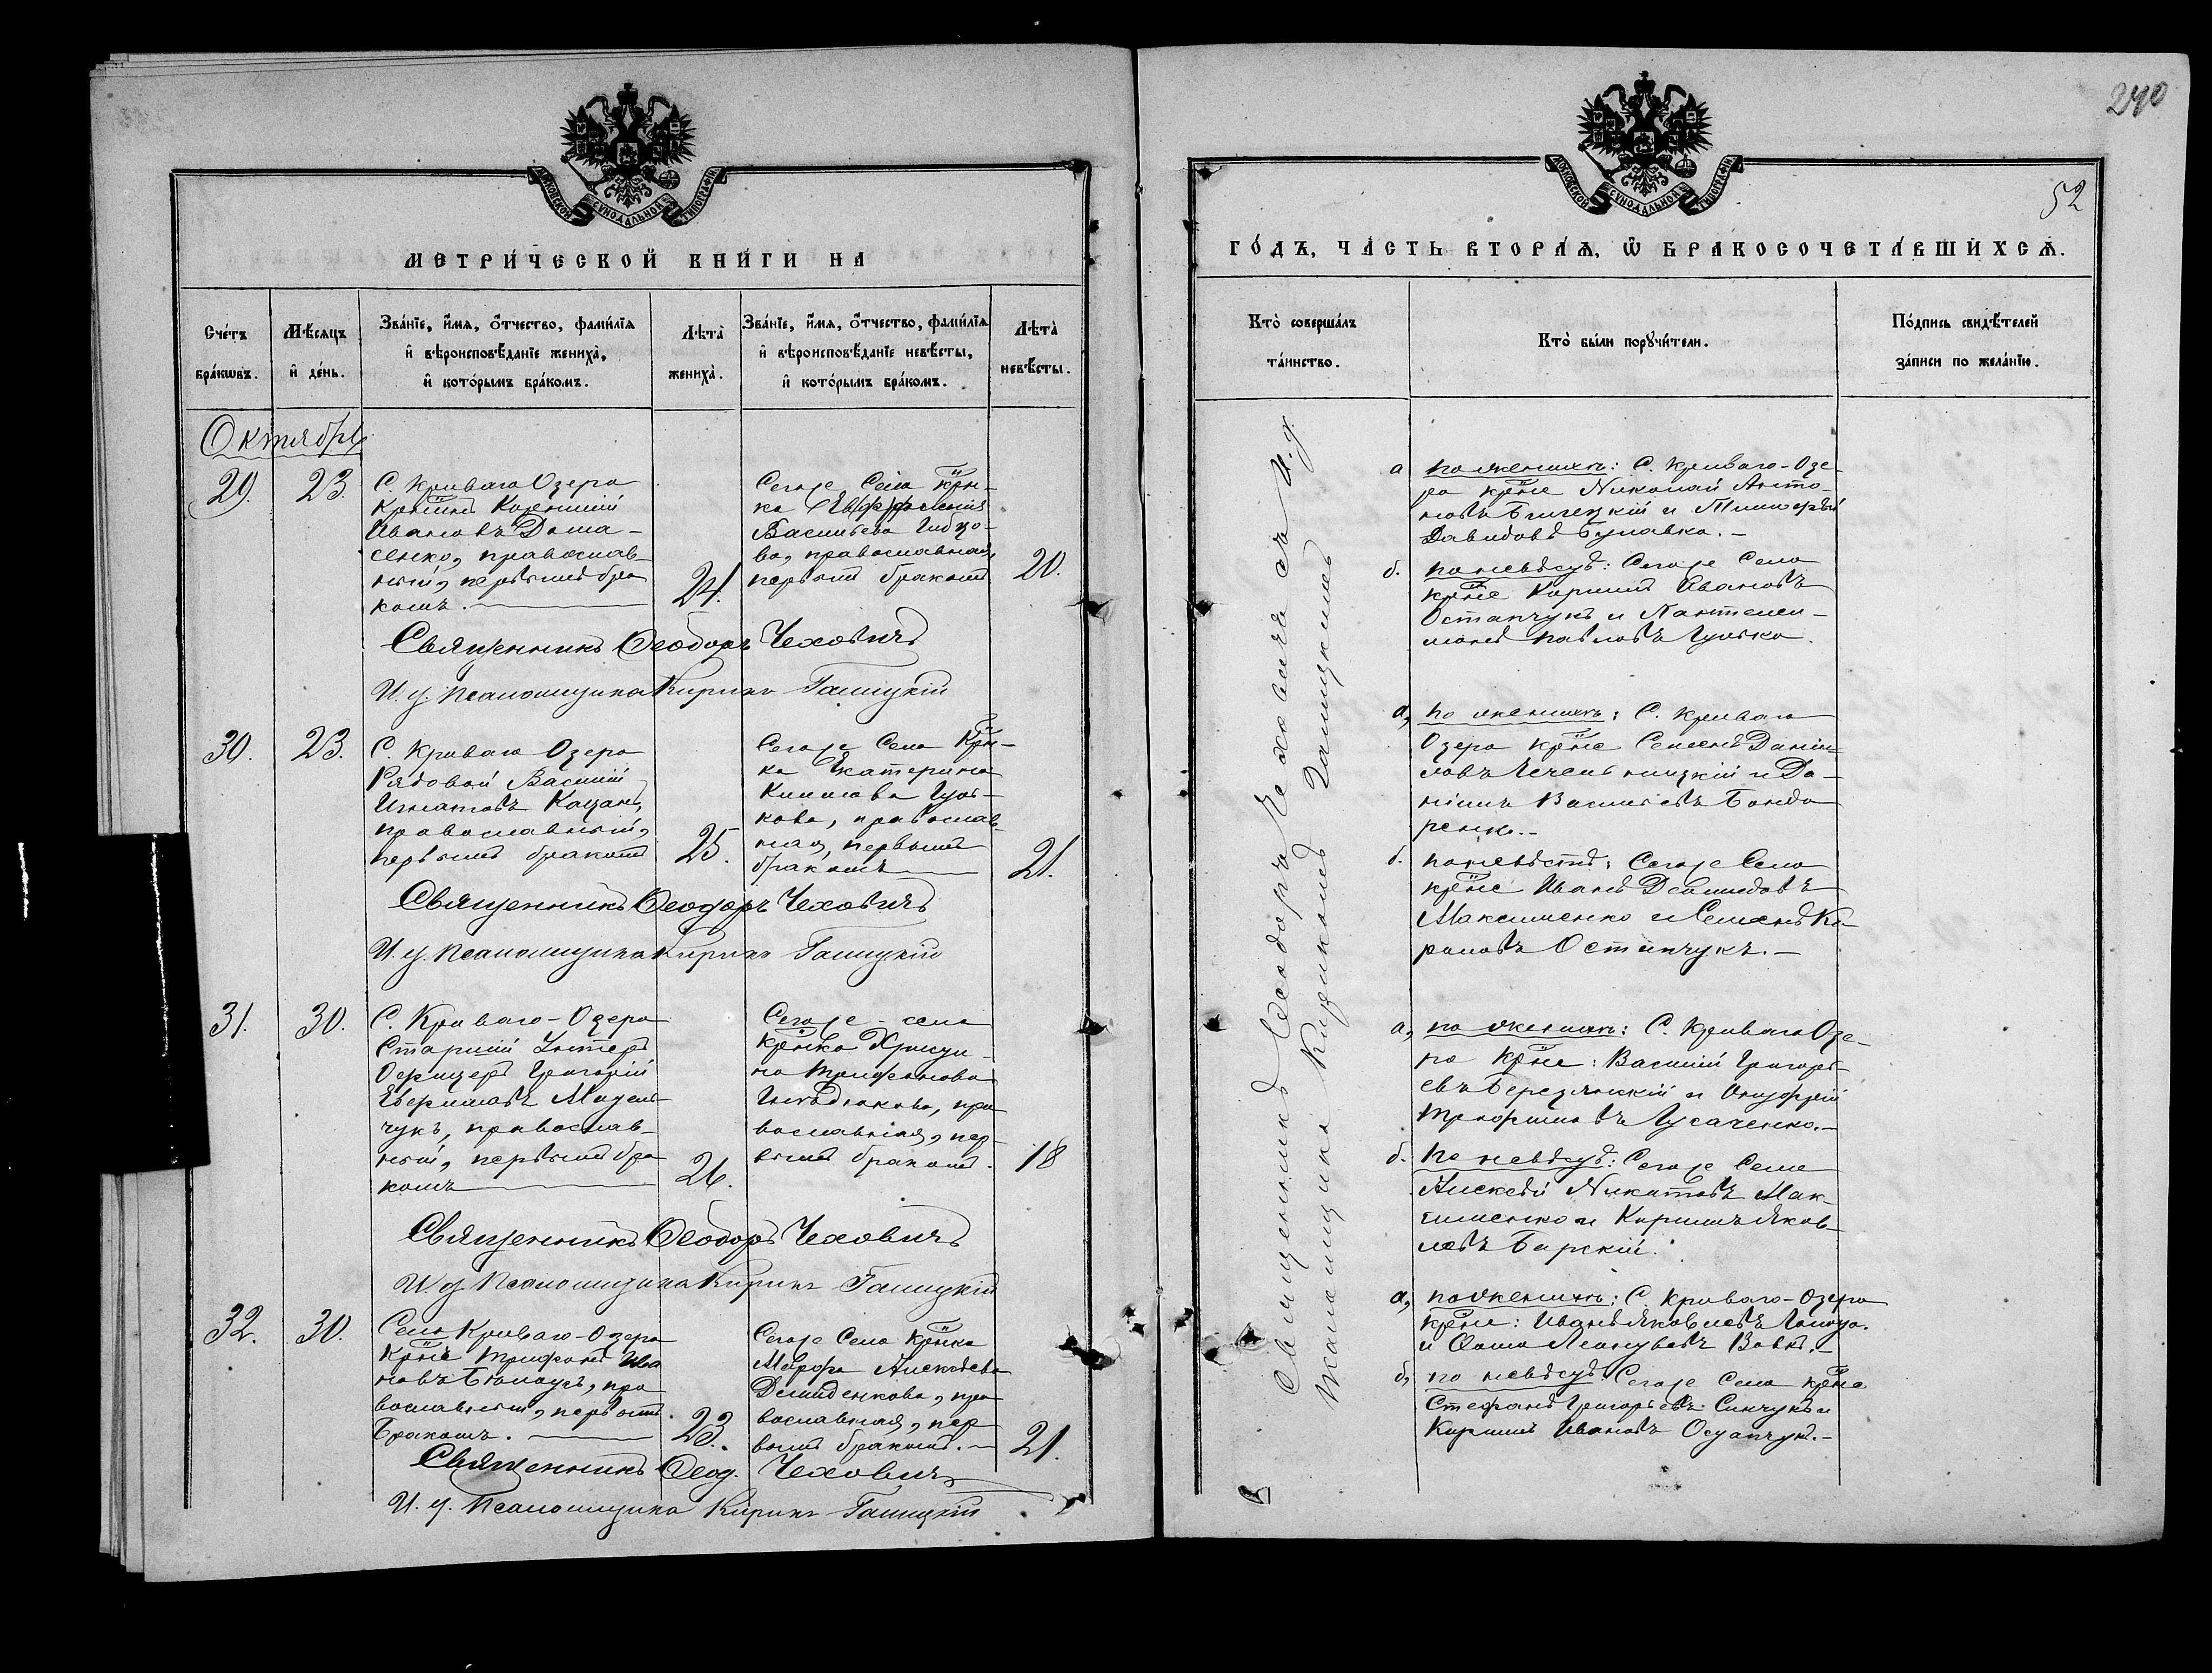 МОСКОВСКОЙ СѴНОДАЛЬНОЙ ТИПОГРАФІИ
МЕТРИ́ЧЕСКОЙ КНИ́ГИ НА
Сче́тъ бра́кѡвъ.
Мѣ́сяцъ и҆ де́нь.
Зва́нїе, и҆́мя, ѻ҆́тчество, фами́лїя
и҆ вѣроисповѣ́данїе жениха̀,
и҆ кото́рымъ бра́комъ.
Лѣта̀ жениха̀.
Зва́нїе, и҆́мя, ѻ҆́тчество, фами́лїя
и҆ вѣроисповѣ́данїе невѣ́сты,
и҆ кото́рымъ бра́комъ.
Лѣта̀ невѣ́сты.
Октябрь
29.
23.
С. Криваго Озера
Ивановъ Дома-
сенко, православ-
ный, первымъ бра
комъ.
24.
Сегоже Села крн-
ка Евфросинія
Васильева
ва, православная,
первымъ бракомъ
20.
Священникъ Ѳеодоръ Чеховичъ
И. д. Псаломщика Кирикъ Галицкій
30.
23.
С. Криваго Озера
Рядовой Василій
Игнатовъ Кацанъ,
православный,
первымъ бракомъ
25.
Сегоже Села Крн-
ка Екатерина
кова, православ-
ная, первымъ
бракомъ
21.
Священникъ Ѳеодоръ Чеховичъ
И. д. Псаломщика Кирикъ Галицкій
31.
30.
С. Криваго-Озера
Старшій Унтеръ
Офицеръ Григорій
чукъ, православ-
ный, первымъ бра
комъ
26.
Сегоже-села
крнка Христи-
на Трифонова
пра
вославная, пер-
вымъ бракомъ.
18
Священникъ Ѳеодоръ Чеховичъ
И. д. Псаломщика Кирикъ Галицкій
32.
30.
Села Криваго-Озера
Крнъ Трифонъ Ива
новъ Бѣлоусъ, пра
вославный, первымъ
Бракомъ.
23.
Сегоже Села Крнка
Марфа Алексѣева
Демиденкова, пра
вославная, пер
вымъ бракомъ.
21.
Священникъ Ѳеод. Чеховичъ
И. д. Псаломщика Кирикъ Галицкій
240
52
МОСКОВСКОЙ СѴНОДАЛЬНОЙ ТИПОГРАФІИ
ГО́ДЪ, ЧА́СТЬ ВТОРА́Я, Ѡ҆ БРАКОСОЧЕТА́ВШИХСЯ.
Кто̀ соверша́лъ
та́инство.
Кто̀ бы́ли порꙋчи́тели.
По́дпись свидѣ́телей
за́писи по жела́нїю.
Священникъ Ѳеодоръ Чеховичъ съ И. д.
Псаломщика Кирикомъ Галицкимъ
а
по женихѣ: С. Криваго-Озе-
ра крне Николай Анто-
новъ и Тимофей
Давидовъ Булавка.-
б.
по невѣстѣ: Сегоже Села
крне Кириллъ Ивановъ
Остапчукъ и Пантелеи-
монъ Павловъ Гулько.
а,
по женихѣ: С. Криваго
Озера крне Семенъ Даніи-
ловъ и Да-
ніилъ Васильевъ Бонда
ренко.-
б.
по невѣстѣ: Сегоже Села
крне Иванъ Демидовъ
Максименко и Семенъ Ка-
рповъ Остапчукъ.-
а,
по женихѣ: С. Криваго Озе-
ра крне: Василій Григорь-
евъ Березянскій и Онуфрій
Трофимовъ Гусаченко.-
б.
По невѣстѣ: Сегоже Села
Алексѣй Никитовъ Мак-
сименко и Кириллъ Яков-
левъ Барскій.
а,
по женихѣ: С Криваго-Озера
крне: Иванъ Яковлевъ
и Ѳома Вовкъ.-
б,
по невѣстѣ Сегоже Села крне
Стефанъ Григорьевъ Синчукъ и
Кириллъ Ивановъ Остапчукъ.-